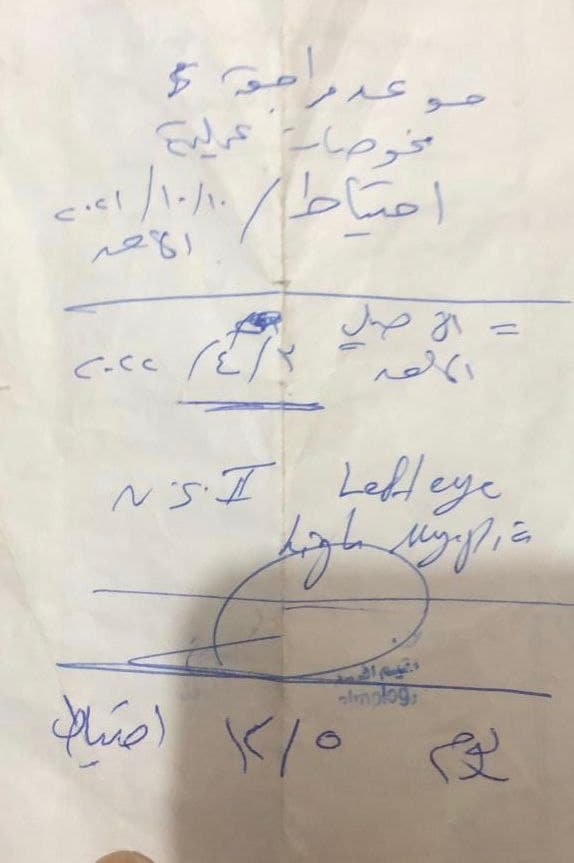 موعد مراجعة
فحوصات عملية
احتياط / ١٠/١٠/٢٠٢١
الاحد
= الاصلي
٢٠٢٢ /٤/
الاحد
N.S.II Left eye
high Myopia
يوم ١٢/٥ احتياط